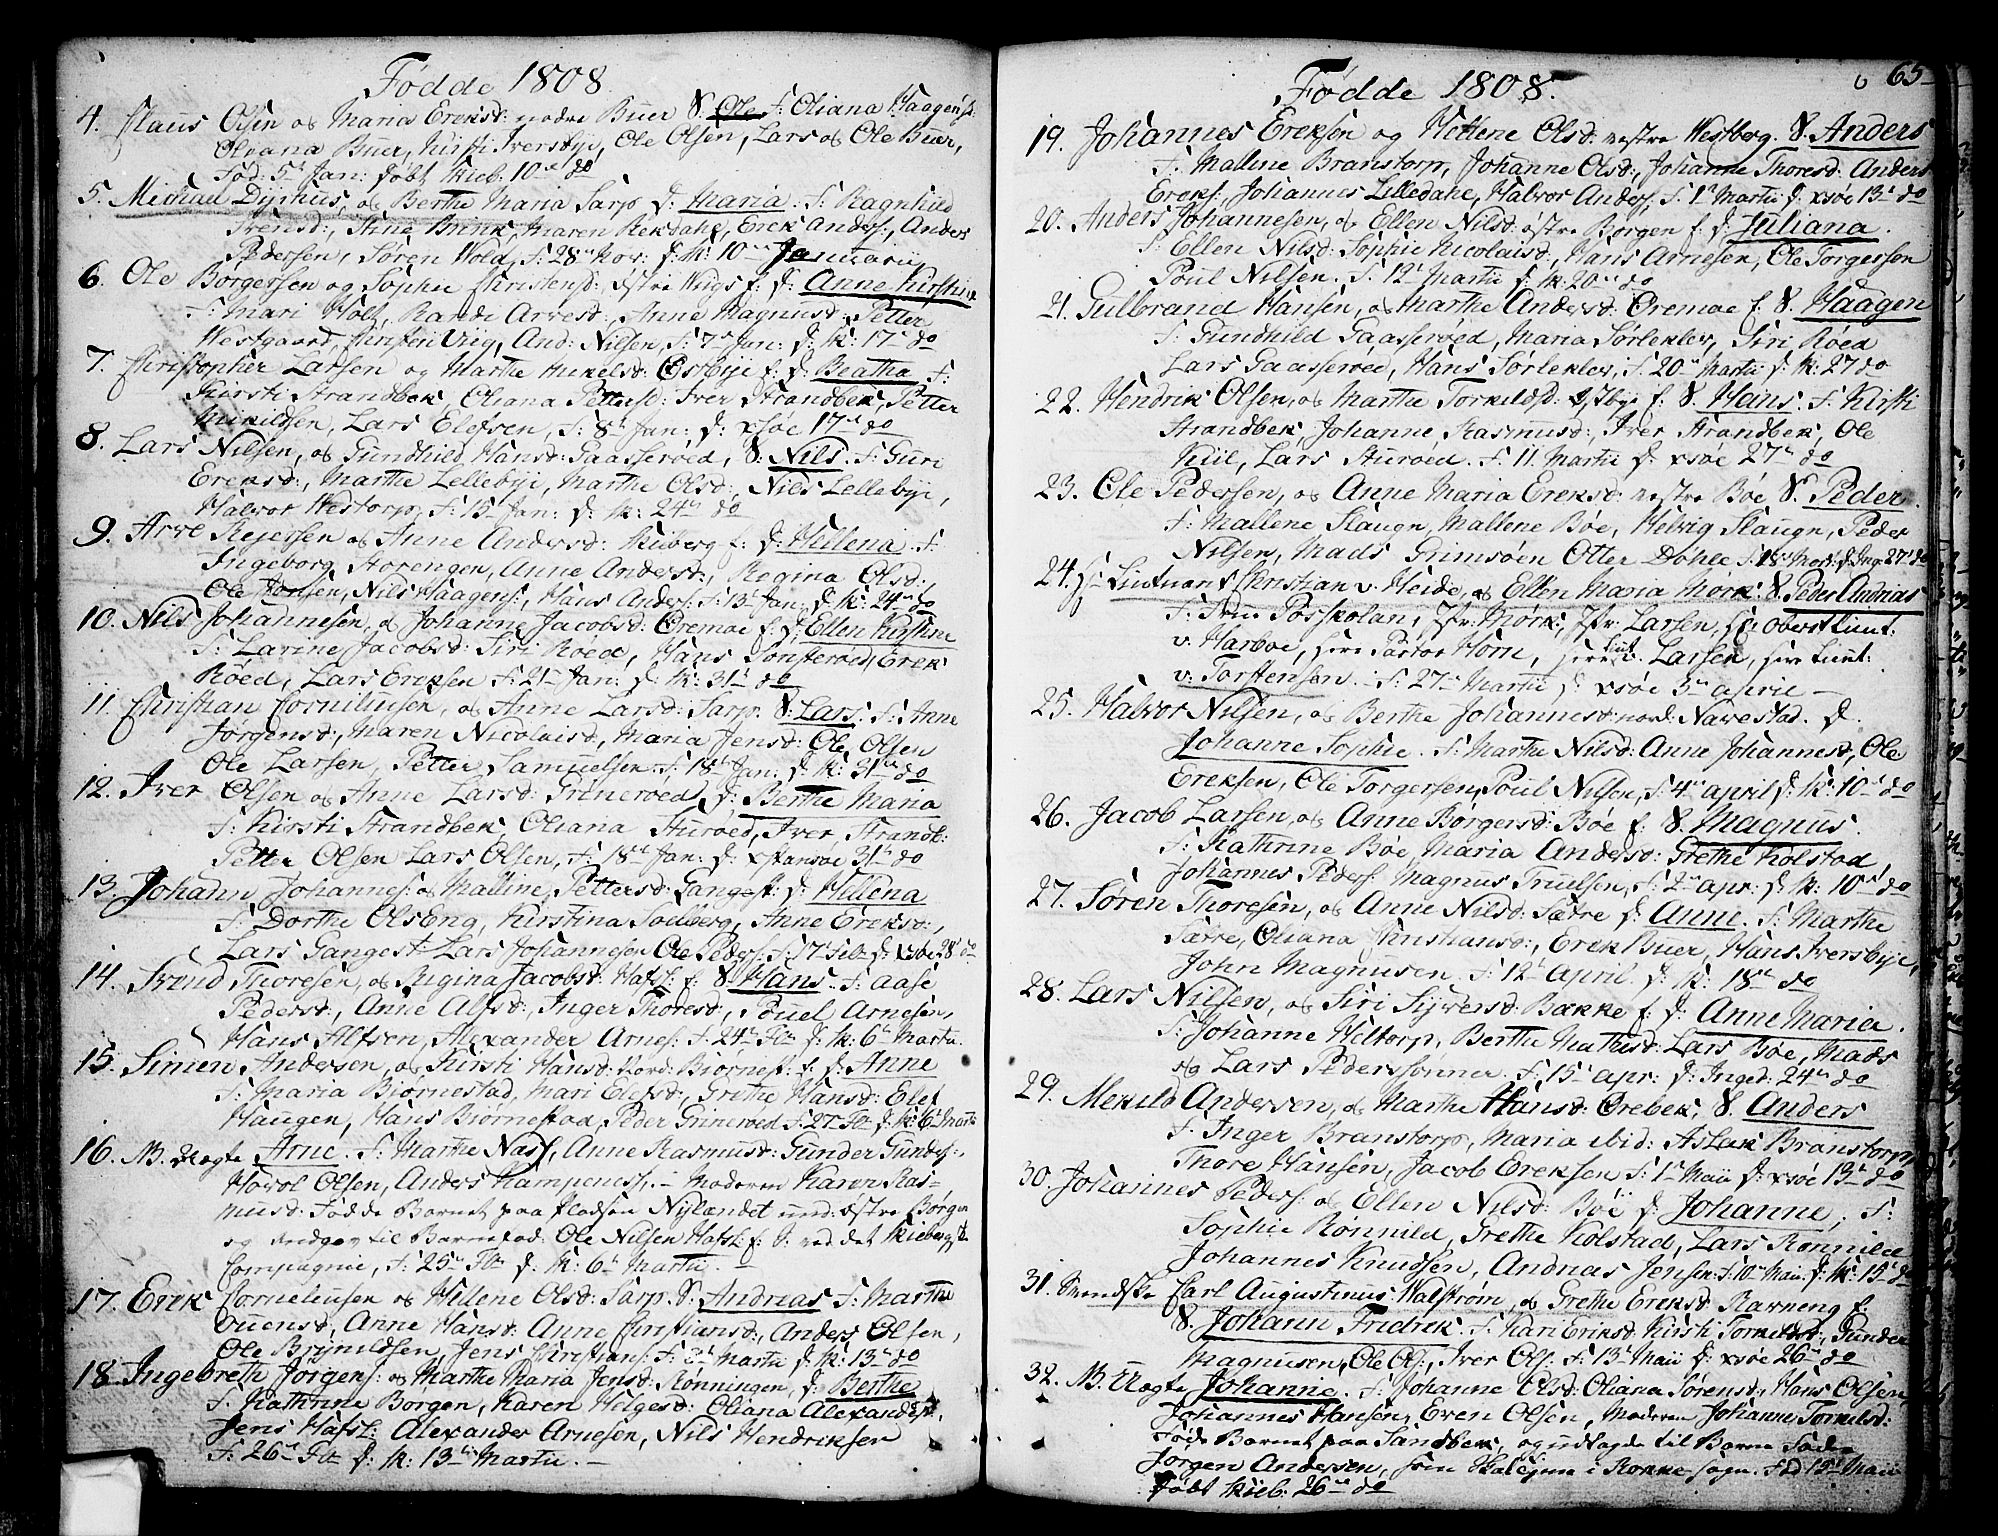 Fødde 1808
4. Claus Olsen og Maria Ereksd: nedre Buer S. Ole F: Oliana Haagensd:
Oleana Buer, Kirsti Iversbye, Ole Olsen, Lars og Ole Buer,
Fød: 5te Jan: døbt Skieb. 10de do
5. Michael Dyrhus, og Berthe Maria Sarp D: Maria. F: Ragnhild
Svensd:, Stine Brink, Maren Reksdahl, Erek Anders:, Anders
Pedersen, Søren Wold, F: 28de Nov: D: K: 10de Januarii
6. Ole Børgersen og Sophie Christensd:, østre Wiigs f: D: Anne Kirstine
F: Mari Holt, Randi Arvesd:, Anne Magnusd: Petter
Westgaard, Christen Viig, And: Nilsen, F: 7de Jan: D: K: 17de do
7. Christopher Larsen og Marthe Mikelsd: Østbye f: D: Beatha F:
Kirsti Strandbek, Oliana Pettersd: Iver Strandbek, Petter
Mikildsen, Lars Elefsen, F: 8de Jan: D: xsøe 17de do
8. Lars Nilsen, og Gundhild Hansd: Gaasserøed, S. Nils. F: Guri
Ereksd:, Marthe Lellebye, Marthe Olsd:, Nils Lellebye,
Halvor Westorp, F: 15de Jan: D: K: 24de do
9. Arve Rejersen og Anne Andersd: Skiberg f: D: Hellena F:
Ingeborg Storengen, Anne Andersd:, Regina Olsd:,
Ole Jonsen, Nils Haagens:, Hans Anders: F: 13de Jan, D: K: 24de do
10. Nils Johannesen, og Johanne Jacobsd: Oremoe f: D: Ellen Kirstine
F: Larine Jacobsd: Siri Røed, Hans Tonsterøed, Erek
Røed, Lars Ereksen F: 21de Jan: D: K: 31de do
11. Christian Corneliusen, og Anne Larsd: Sarp. S. Lars. F: Anne
Jørgensd:, Maren Nicolaisd, Maria Jensd: Ole Olsen
Ole Larsen, Petter Samuelsen. F: 18de Jan: D: K: 31de do
12. Iver Olsen og Anne Larsd: Grinerøed D: Berthe Maria
F: Kirsti Strandbek, Oliana Sturøed, Iver Strandb:
Petter Olsen Lars Olsen, F: 18de Jan: D: xstansøe 31de do
13. Johann Johannes: og Malline Pettersd: Gangest: D: Hellena
F: Dorthe Olseng, Kirstina Solberg, Anne Ereksd:,
Lars Gangest Lars Johannesen Ole Peders: F: 17de Feb: D: xsøe 28de do
14. Svend Thoresen, og Regina Jacobsd: Hafsl: f: S. Hans. F: Aase
Pedersd:, Anne Alfsd:, Inger Thoresd:, Pouel Arnesen,
Hans Alfsen, Alexander Arnes: F: 24de Feb: D: K: 6te Martii
15. Simen Andersen, og Kirsti Hansd: Nord: Biørnest: f: D: Anne
F: Maria Biørnestad, Mari Elefsd:, Grethe Hansd: Elef
Haugen, Hans Biørnestad, Peder Grinerøed F: 27 Feb: D: K: 6te Martii
16. NB. uægte Arne. F: Marthe Næss, Anne Rasmusd: Gunder Gunders:,
Havol Olsen, Anders Kampenes:, Moderen Karen Ras-
musd: Fødde Barnet paa Pladsen Nylændet und: østre Børgen
og Angav til Barnefad: Ole Nilsen Hafsl: f: S: ved det Skiebergske
Compagnie, F: 25de Feb: D: K: 6te Martii.
17. Erek Corneliusen og Hellene Olsd: Sarp. S. Andreas F: Marthe
Ouensd:, Anne Hansd: Anne Christiansd:, Anders Olsen,
Ole Brynildsen, Jens Christians: F: 3de Martii D: K: 13de do
18. Ingebreth Jørgens: og Marthe Maria Jensd: Rønningen, D: Berthe
F: Kathrine Børgen, Karen Helgesd: Oliana Alexandersd:,
Jens Hafsl: Alexander Arnesen, Nils Hendriksen
F: 26de Feb: D: K: 13de Martii.
65
Fødde 1808.
19. Johannes Ereksen og Hellene Olsd: vestre Westberg. S. Anders
F: Mallene Branstorp, Johanne Olsd:, Johanne Thoresd: Anders
Ereks:, Johannes Lilledahl, Halvor Anders, F: 1te Martii D: xsøe 13de do
20. Anders Johannesen, og Ellen Nilsd: østre Borgen f: D: Juliana.
F: Ellen Nilsd: Sophie Nicolaisd:, Hans Arnesen, Ole Torgersen
Poul Nilsen. F: 12te Martii D: K: 20de do
21. Gulbrand Hansen, og Marthe Andersd: Oremoe f: S. Haagen
F: Gundhild Gaasserøed, Maria Sørlekler, Siri Røed
Lars Gaasserøed, Hans Sørlekler, F: 20de Martii D: K: 27 do
22. Hendrik Olsen, og Marthe Torkildsd: Østbye f: S. Hans. F: Kirsti
Strandbek, Johanne Rasmusd:, Iver Strandbek, Ole
Kiil, Lars Sturøed. F: 11. Martii D: xsøe 27de do
23. Ole Pedersen, og Anne Maria Ereksd: vestre Bøe S. Peder
F: Mallene Slaugn, Mallene Bøe, Helvig Slaugn, Peder
Nilsen, Mads Grimsøen Otter Dahle F: 18de Mart: D: Ing: 27de do
24. Hr Lieutnant Christian v: Heide, og Ellen Maria Mørk: S. Peder Andreas
F: Frue Posskolan, Jfr: Mørk, Jfr: Larsen, Hr: Oberstlieut:
v: Harboe, Herr Pastor Horn, Herr Lieut Larsen, Herr Lieut:
v: Torstenson. F: 27de Martii D: xsøe 3de April
25. Halvor Nilsen, og Berthe Johannesd: nord: Navestad. D.
Johanne Sophie. F: Marthe Nilsd: Anne Johannesd, Ole
Ereksen, Ole Torgersen, Poul Nilsen, F: 4de April D: K: 10de do
26. Jacob Larsen, og Anne Børgersd: Bøe f: S. Magnus.
F: Kathrine Bøe, Maria Andersd: Grethe Kolstad,
Johannes Peders: Magnus Truelsen, F: 2de Apr: D: K: 10de do
27. Søren Thoresen, og Anne Nilsd: Sætre D: Anne. F: Marthe
Sætre, Oliana Christiansd:, Erek Buer, Hans Iversbye,
John Magnusen. F: 12te April. D: K: 18de do
28. Lars Nilsen, og Siri Syversd: Bække f: D: Anne Maria.
F: Johanne Heltorp, Berthe Mathisd: Lars Bøe, Mads
og Lars Pederssønner. F: 15de Apr: D: Inged: 24de do
29. Mekild Andersen, og Marthe Hansd: Orebek, S. Anders
F: Inger Branstorp, Maria ibid: Aslak Branstorp
Thore Hansen, Jacob Ereksen F: 1te Maii D: xsøe 13de do
30. Johannes Peders: og Ellen Nilsd: Böe D: Johanne, F:
Sophie Rønnild, Grethe Kolstad, Lars Rønnild
Johannes Knudsen, Andreas Jensen: F: 10de Maii D: K: 15de do
31. Svendske Carl Augustinus Walstrøm, og Grethe Ereksd: Ravneng f:
S. Johann Fredrik. F: Kari Eriksd: Kirsti Torkildsd:, Gunder
Magnusen, Ole Ols:, Iver Ols: F: 13de Maii D: xsøe 26de do
32. NB. Uægte Johanne. F: Johanne Olsd: Oliana Sørensd:, Hans Olsen,
Johannes Hansen, Even Olsen, Moderen Johanne Torkildsd:
Føde Barnet paa Sandbek, og udlagde til Barne Fader
Jørgen Andersen, fra i Rokke sogn. Fød 15de Maii
Døbt Skieb: 26de do